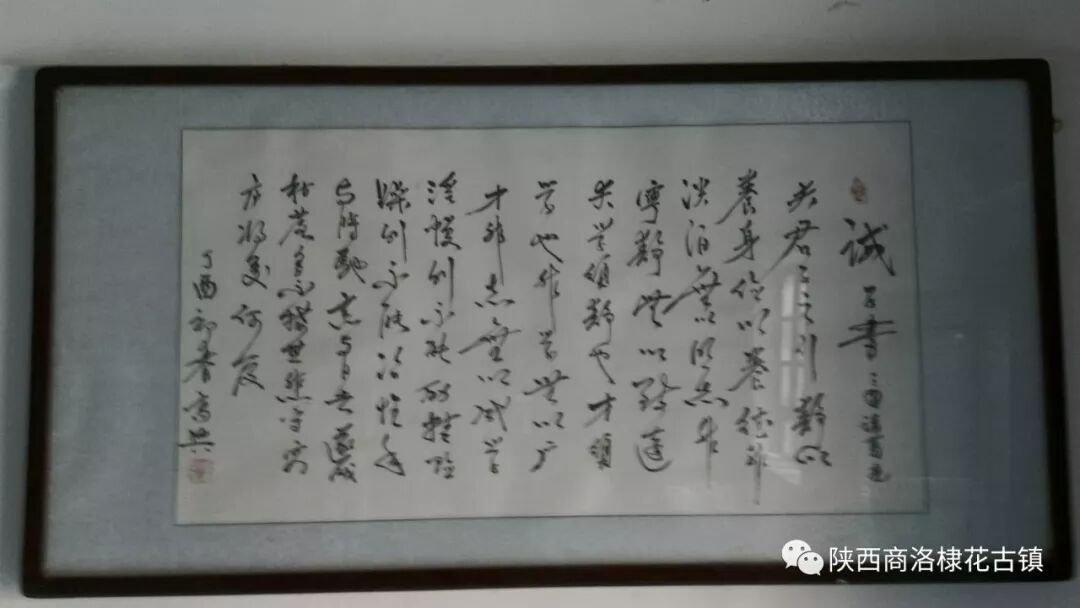 诫子书 三国诸葛亮
夫君子之行静以
养身俭以养德非
淡泊无以明志非
宁静无以致远
夫学须静也才须
学也非学无以广
才非志无以成学
淫慢则不能励精险
躁则不能治性年
与时驰意与日去遂成
枯落多不接世悲守穷
庐将复何及
丁酉初春高兴
陕西商洛棣花古镇